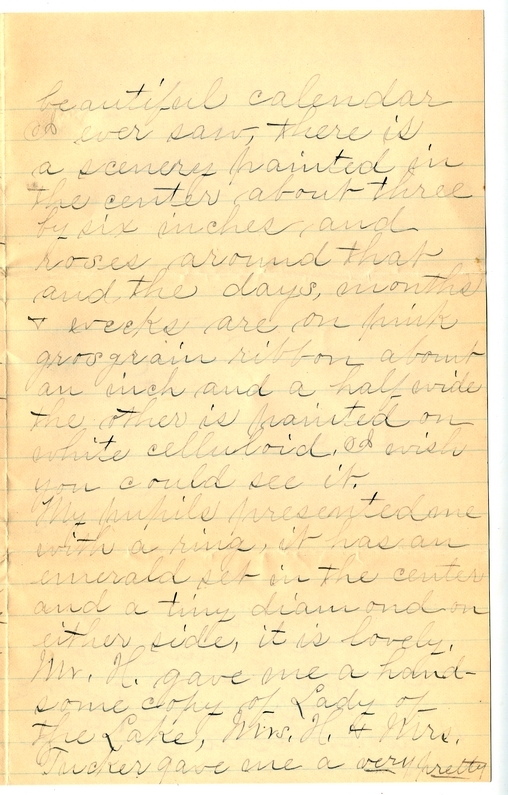 beautiful calendar
I ever saw, there is
a scenery painted in
the center about three
by six inches and
roses around that
and the days, months
& weeks are on pink
grosgrain ribbon about
an inch and a half wide
the other is painted on
white celluloid. I wish
you could see it.
My pupils presented me
with a ring, it has an
emerald set in the center
and a tiny diamond on
either side, it is lovely.
Mr. H. gave me a hand-
some copy of Lady of
the Lake, Mrs. H. & Mrs.
Tucker gave me a very pretty